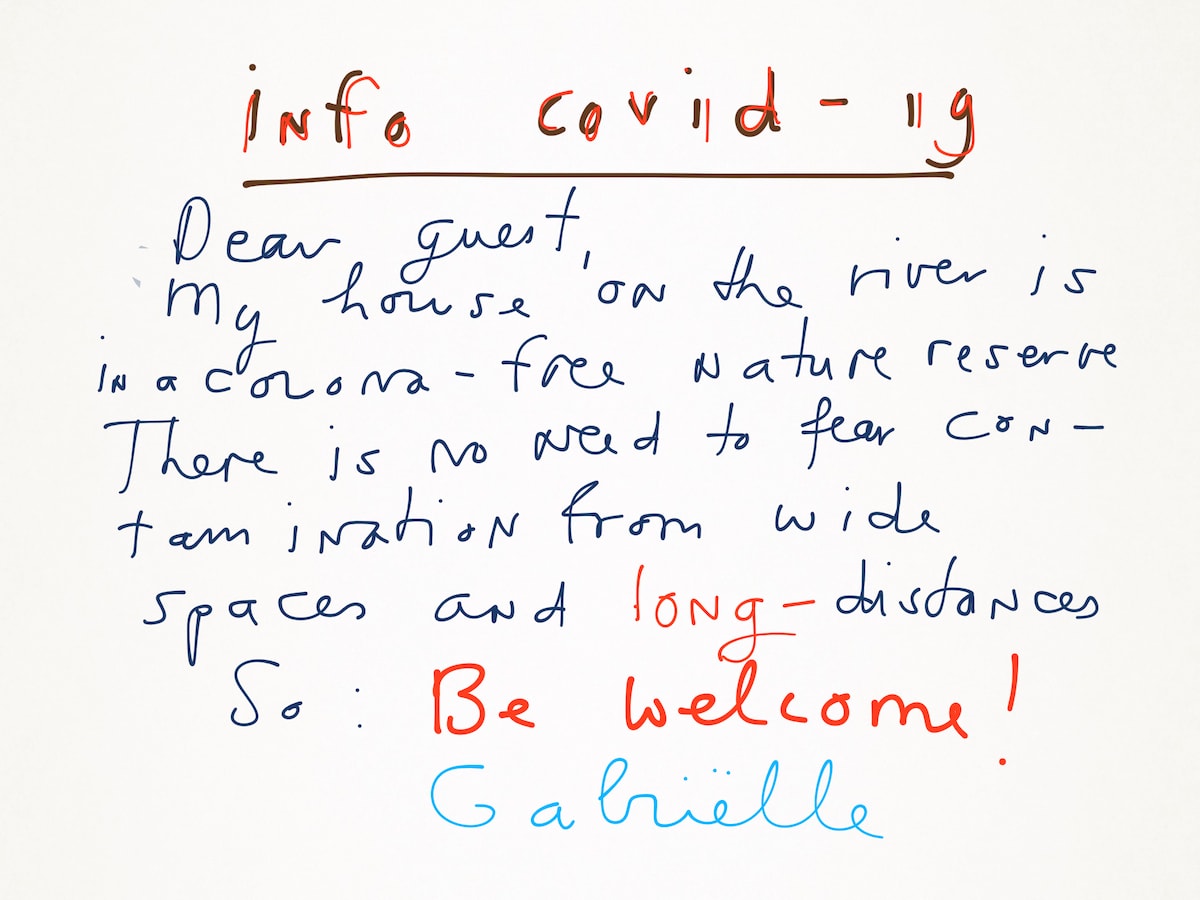 info covid - 19
Dear guest,
My house 'on the river is
in a corona - free nature reserve
There is no need to fear con -
tamination from wide
spaces and long - distances
So : Be welcome!
Gabriëlle